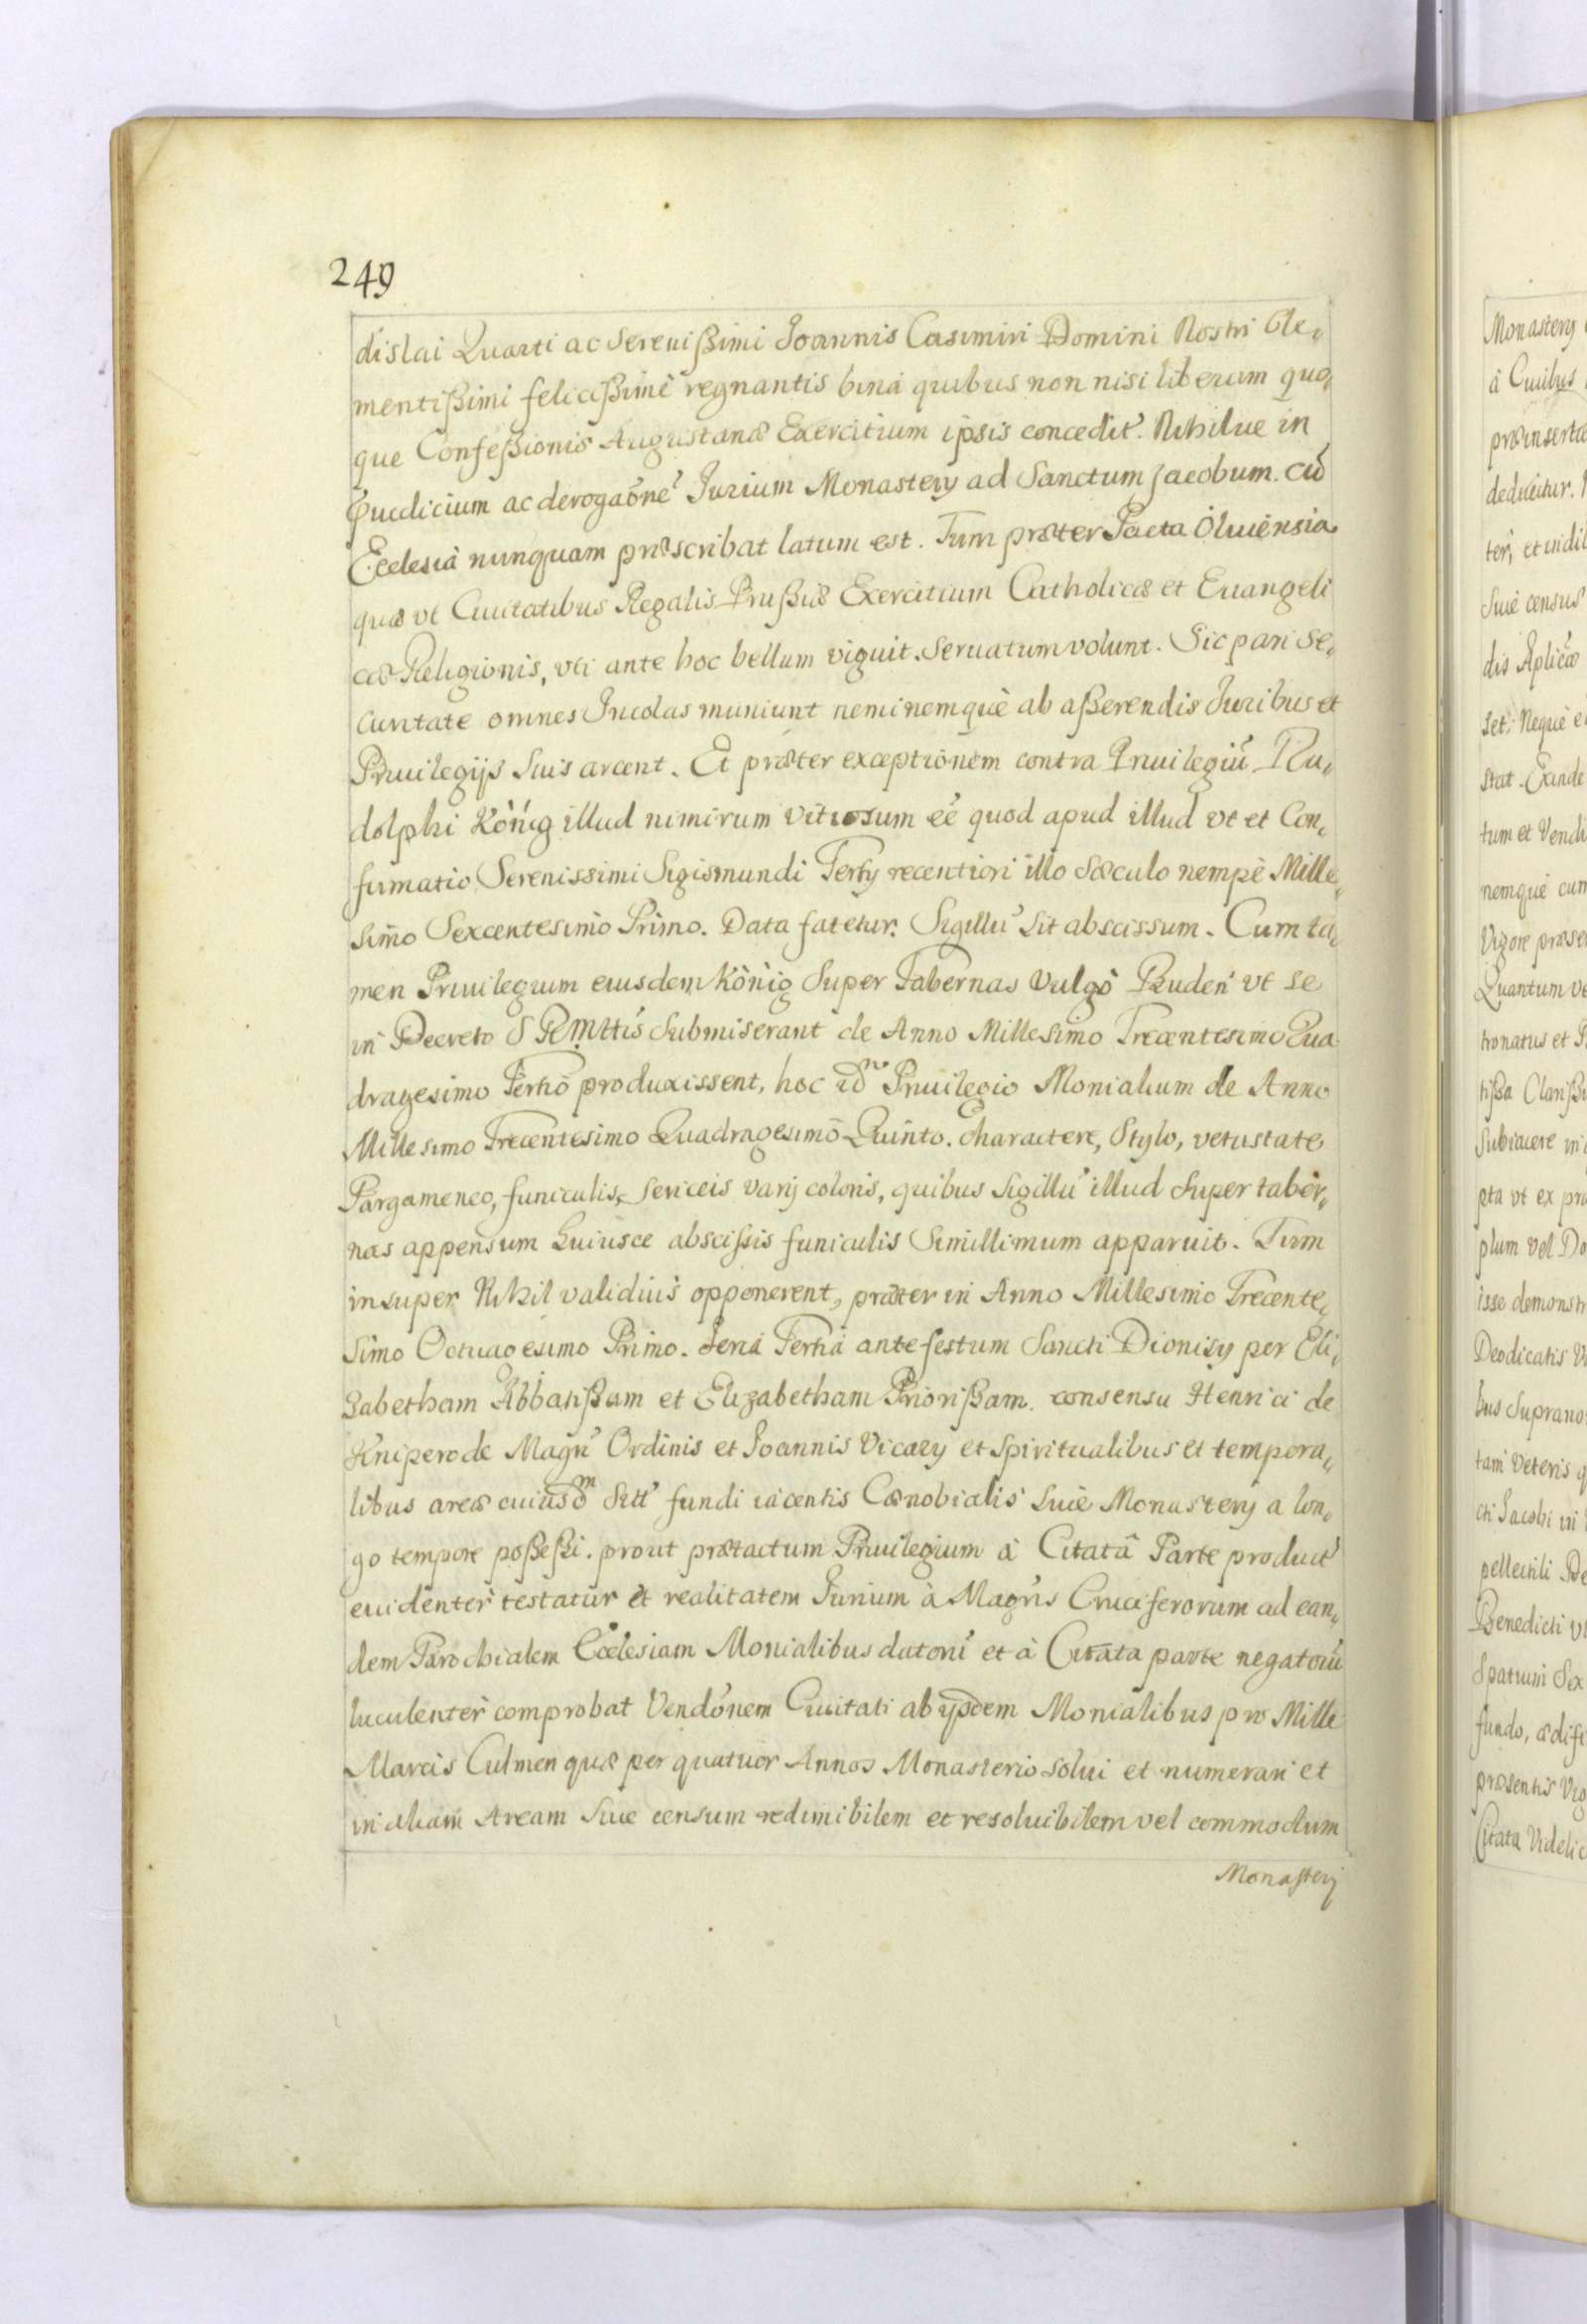 249
dislai Quarti ac Serenißimi Joannis Casimiri Domini Nostri Cle„
mentißimi felicißimè regnantis bina quibus non nisi liberum quo„
que Confeßionis Augustanæ Exercitium ipsis concedit̃. Nihilue in
Præiudicium ac derogaõne᷉ Jurium Monastery ad Sanctum Jacobum. cũ
Ecclesia nunquam præscribat latum est. Tum præter Pacta Oliuensia
quæ vt Ciuitatibus Regalis Prußiæ Exercitium Catholicæ et Euangeli
cæ Religionis, vti ante hoc bellum viguit. Seruatum volunt. Sic pari se„
curitate omnes Incolas muniunt neminemquè ab aßerendis Juribus et
Priuilegijs Suis arcent. Et præter exceptionem contra Priuilegiũ Ru„
dolphi König illud nimirum vitiosum eẽ quod apud illud vt et Con„
firmatio Serenissimi Sigismundi Tertÿ recentiori illo Sæculo nempè Mille„
simo Sexcentesimo Primo. Data fatetur. Sigillũ Sit abscissum. Cum ta„
men Priuilegium eiusdem König Super Tabernas Vulgò Buden vt se
in Decreto S R Mttis Submiserant de Anno Millesimo Trecentesimo Qua
dragesimo Tertio produxissent, hoc Priuilegio Monialium de Anno
Millesimo Trecentesimo Quadragesimo Quinto. Charactere, Stylo, vetustate
Pargameneo, funiculis, Sericeis varij coloris, quibus Sigillũ illud Super taber„
nas appensum huiusce abscißis funiculis Simillimum apparuit. Tum
insuper Nihil validius opponerent, præter in Anno Millesimo Trecente„
simo Octuagesimo Primo. feria Tertia ante festum Sancti Dionisy per Eli„
zabetham Abbatißam et Elizabetham Priorißam. consensu Henrici de
Kniperode Magr̃i Ordinis et Joannis Vicary et Spiritualibus et tempora„
libus areæ cuiusdm Siue fundi iacentis Cœnobialis Siue Monastery a lon„
go tempore poßeßi. prout prætactum Priuilegium à Citatâ Parte product̃
euidentèr testatur et realitatem Jurium à Magr̃is Cruciferorum ad ean„
dem Parochialem Ecclesiam Monialibus datorũ et à Citata parte negatorũ
luculentèr comprobat Vendõnem Ciuitati ab ijsdem Monialibus pro Mille
Marcis Culmen quæ per quatuor Annos Monasterio Solui et numerari et
in aliam Aream Siue censum redimibilem et resoluibilem vel commodum
Monasterij
Monastery
à Ciuibus
præinsertæ
deducitur.
Siue census
dis Aplicæ
set. Nequè
stat. Exinde
tum et Vendi
nemquè cum
Vigore præse
Quantum ve
tronatus et
tißa Clarißi
Subiacere in
pta vt ex pri
plum vel Do
isse demonstr
Deodicatis
bus Suprano
tam veteris
cti Jacobi in
pellectili De
Benedicti
Spatium Sex
fundo, ædifi
præsentis Vig
Citata Videlic